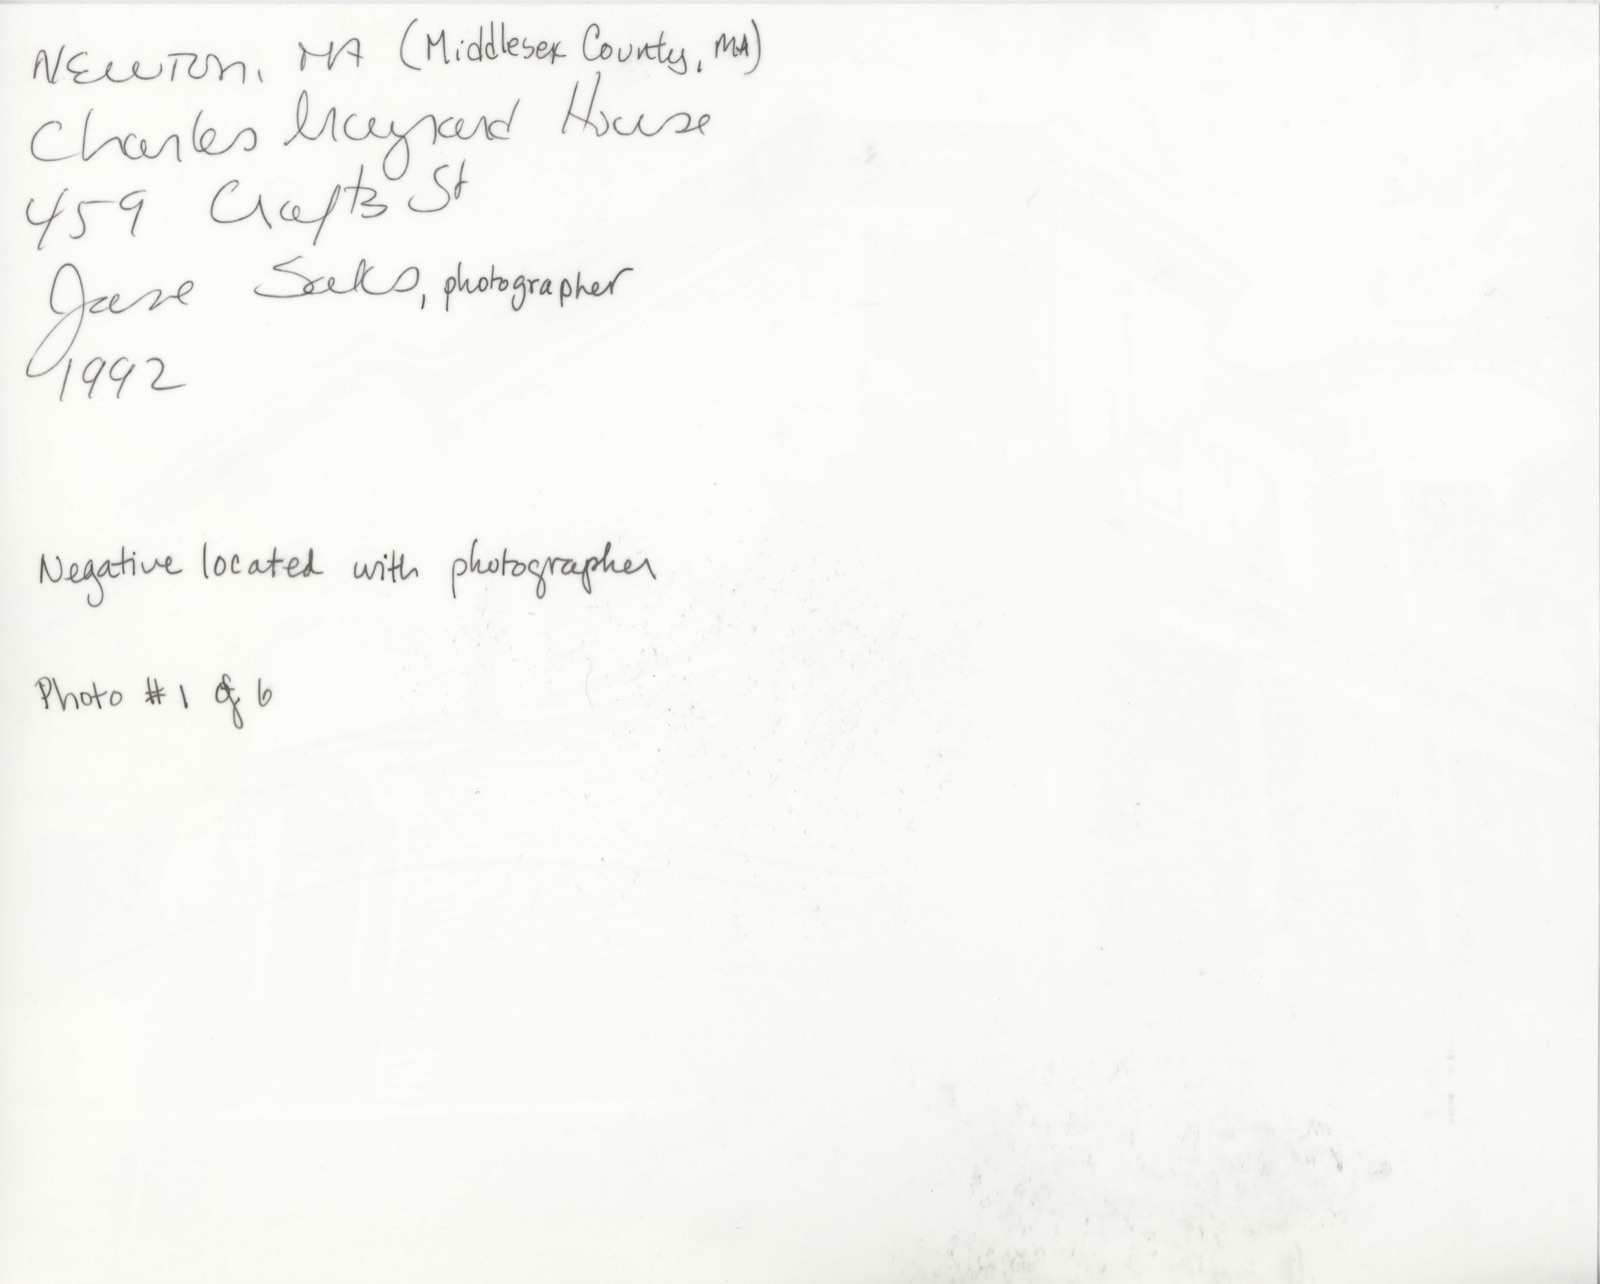 NEWTON, MA (Middlesex County, MA)
Charles Maynard House
459 Crafts St
Jane Saks, photographer
1992
Negative located with photographer
Photo #1 of 6